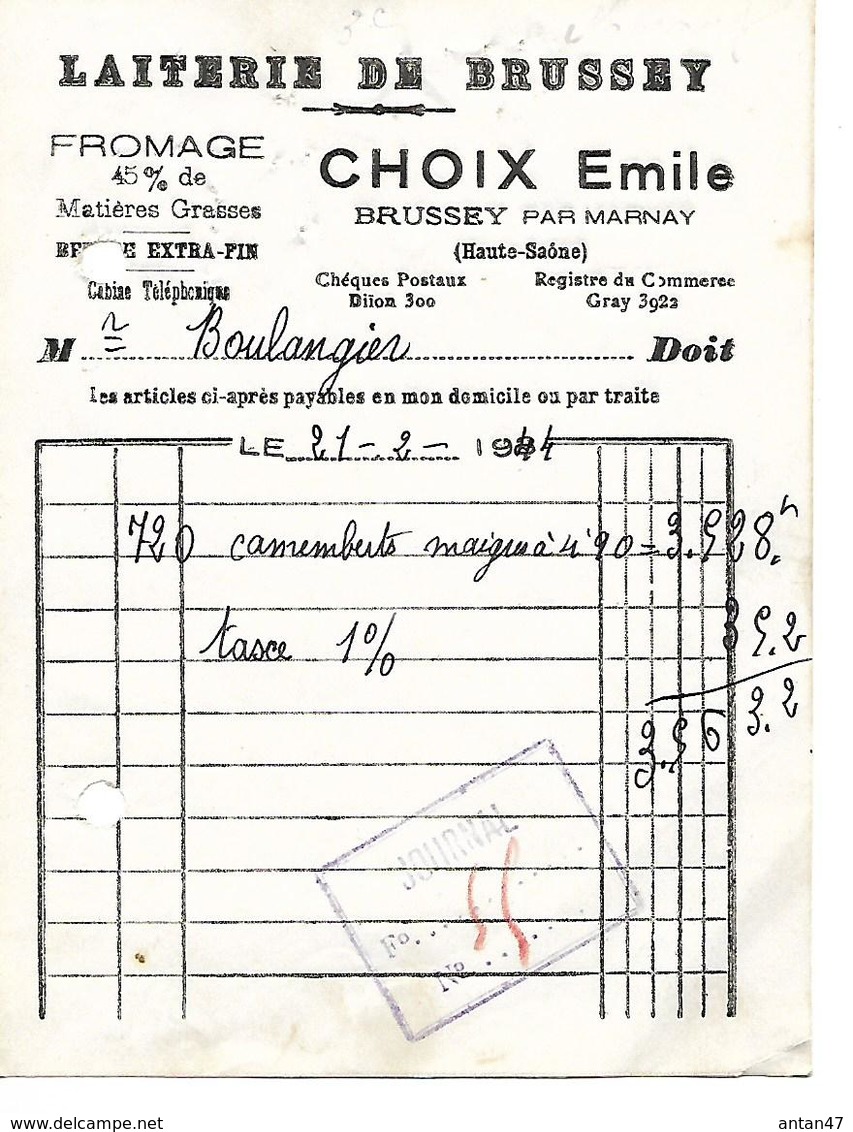 LAITERIE DE BRUSSEY
FROMAGE
45% de
Matières Grasses
EXTRA-FIN
Cabine Téléphonique
CHOIX Emile
BRUSSEY PAR MARNAY
(Haute-Saône)
Chéques Postaux
Dijon 300
Registre du Commerce
Gray 3922
M r Boulangier Doit
les articles ci-après payables en mon domicile ou par traite
LE 21-2-1944
720 camemberts maigres à 4'90 = 3.528.
tasce 1% 35.2
3.56 3.2
JOURNAL
Fo.
No
delcampe.net
antan47